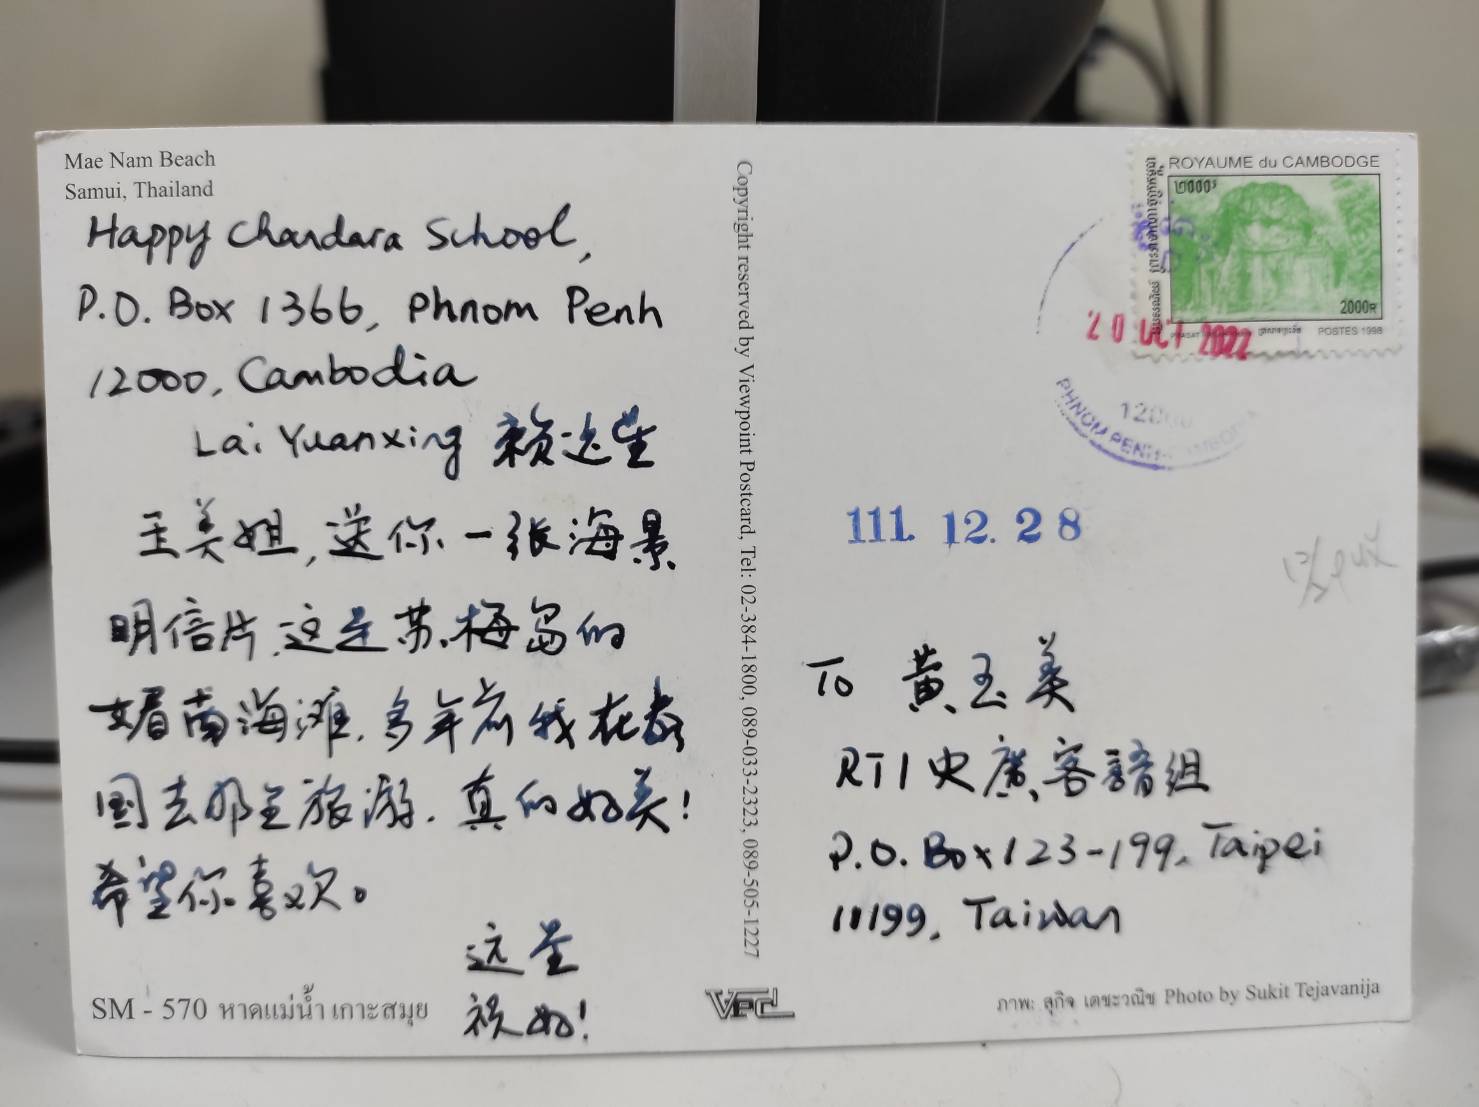 Mae Nam Beach
Samui, Thailand
Happy Chandara School,
P.O. Box 1366, Phnom Penh
12000, Cambodia
Lai Yuanxing 赖远星
玉美姐, 送你一张海景
明信片,这是苏梅岛的
媚南海滩,多年前我在泰
国去那里旅游,真的好美!
希望你喜欢。
远星
祝好!
SM - 570 หาดแม่น้ำ เกาะสมุย
Copyright reserved by Viewpoint Postcard, Tel: 02-384-1800, 089-033-2323, 089-505-1227
ROYAUME du CAMBODGE
២០០០៛
2000R
POSTES 1998
20 OCT 2022
PHNOM PENH
111. 12. 28
To 黄玉美
RTI 央廣客語組
P.O. Box 123-199, Taipei
11199, Taiwan
VPC
ภาพ: สุกิจ เตชะวณิช Photo by Sukit Tejavanija